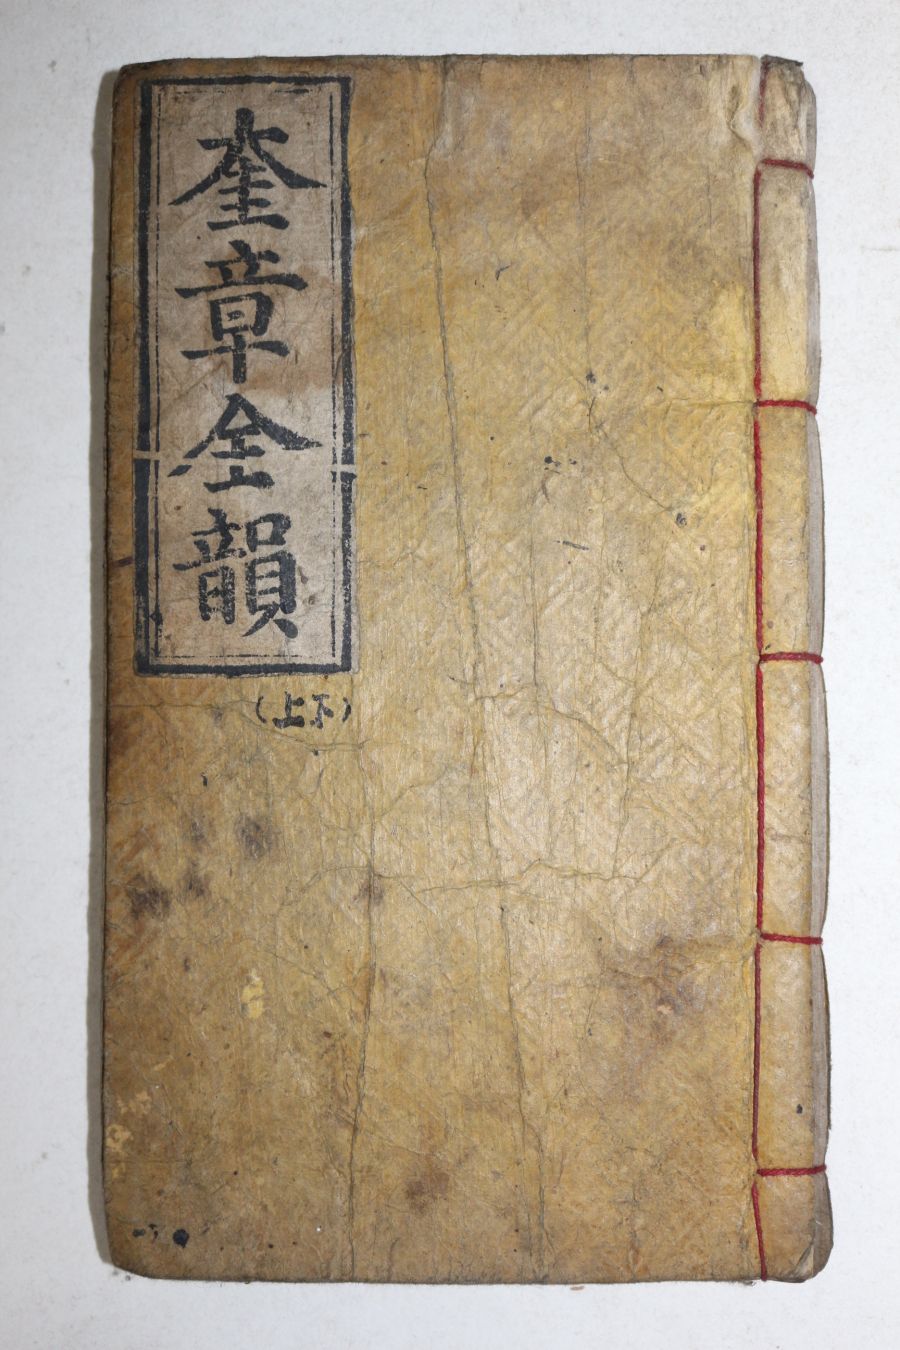 奎章全韻
(上下)